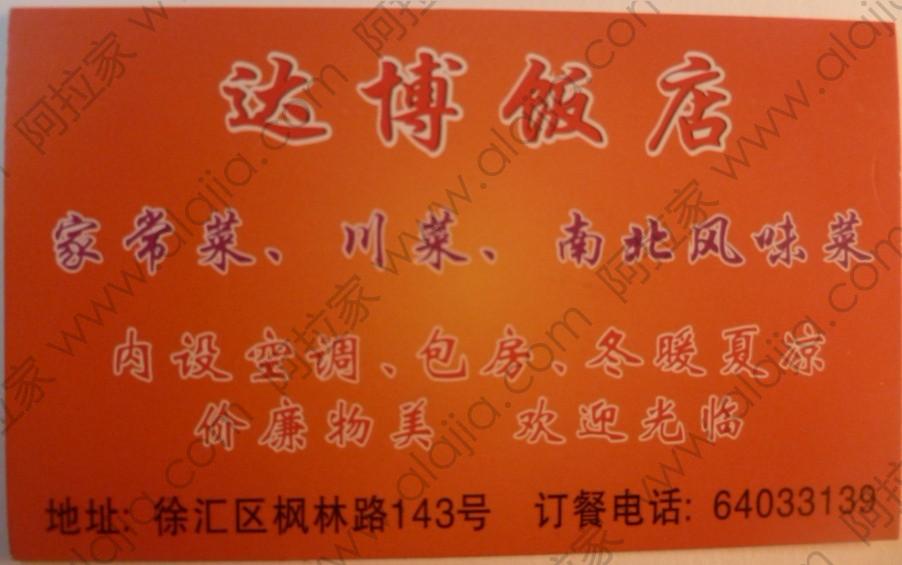 达博饭店
家常菜、川菜、南北风味菜
内设空调、包房、冬暖夏凉
价廉物美 欢迎光临
地址: 徐汇区枫林路143号 订餐电话: 64033139
阿拉家 www.alajia.com